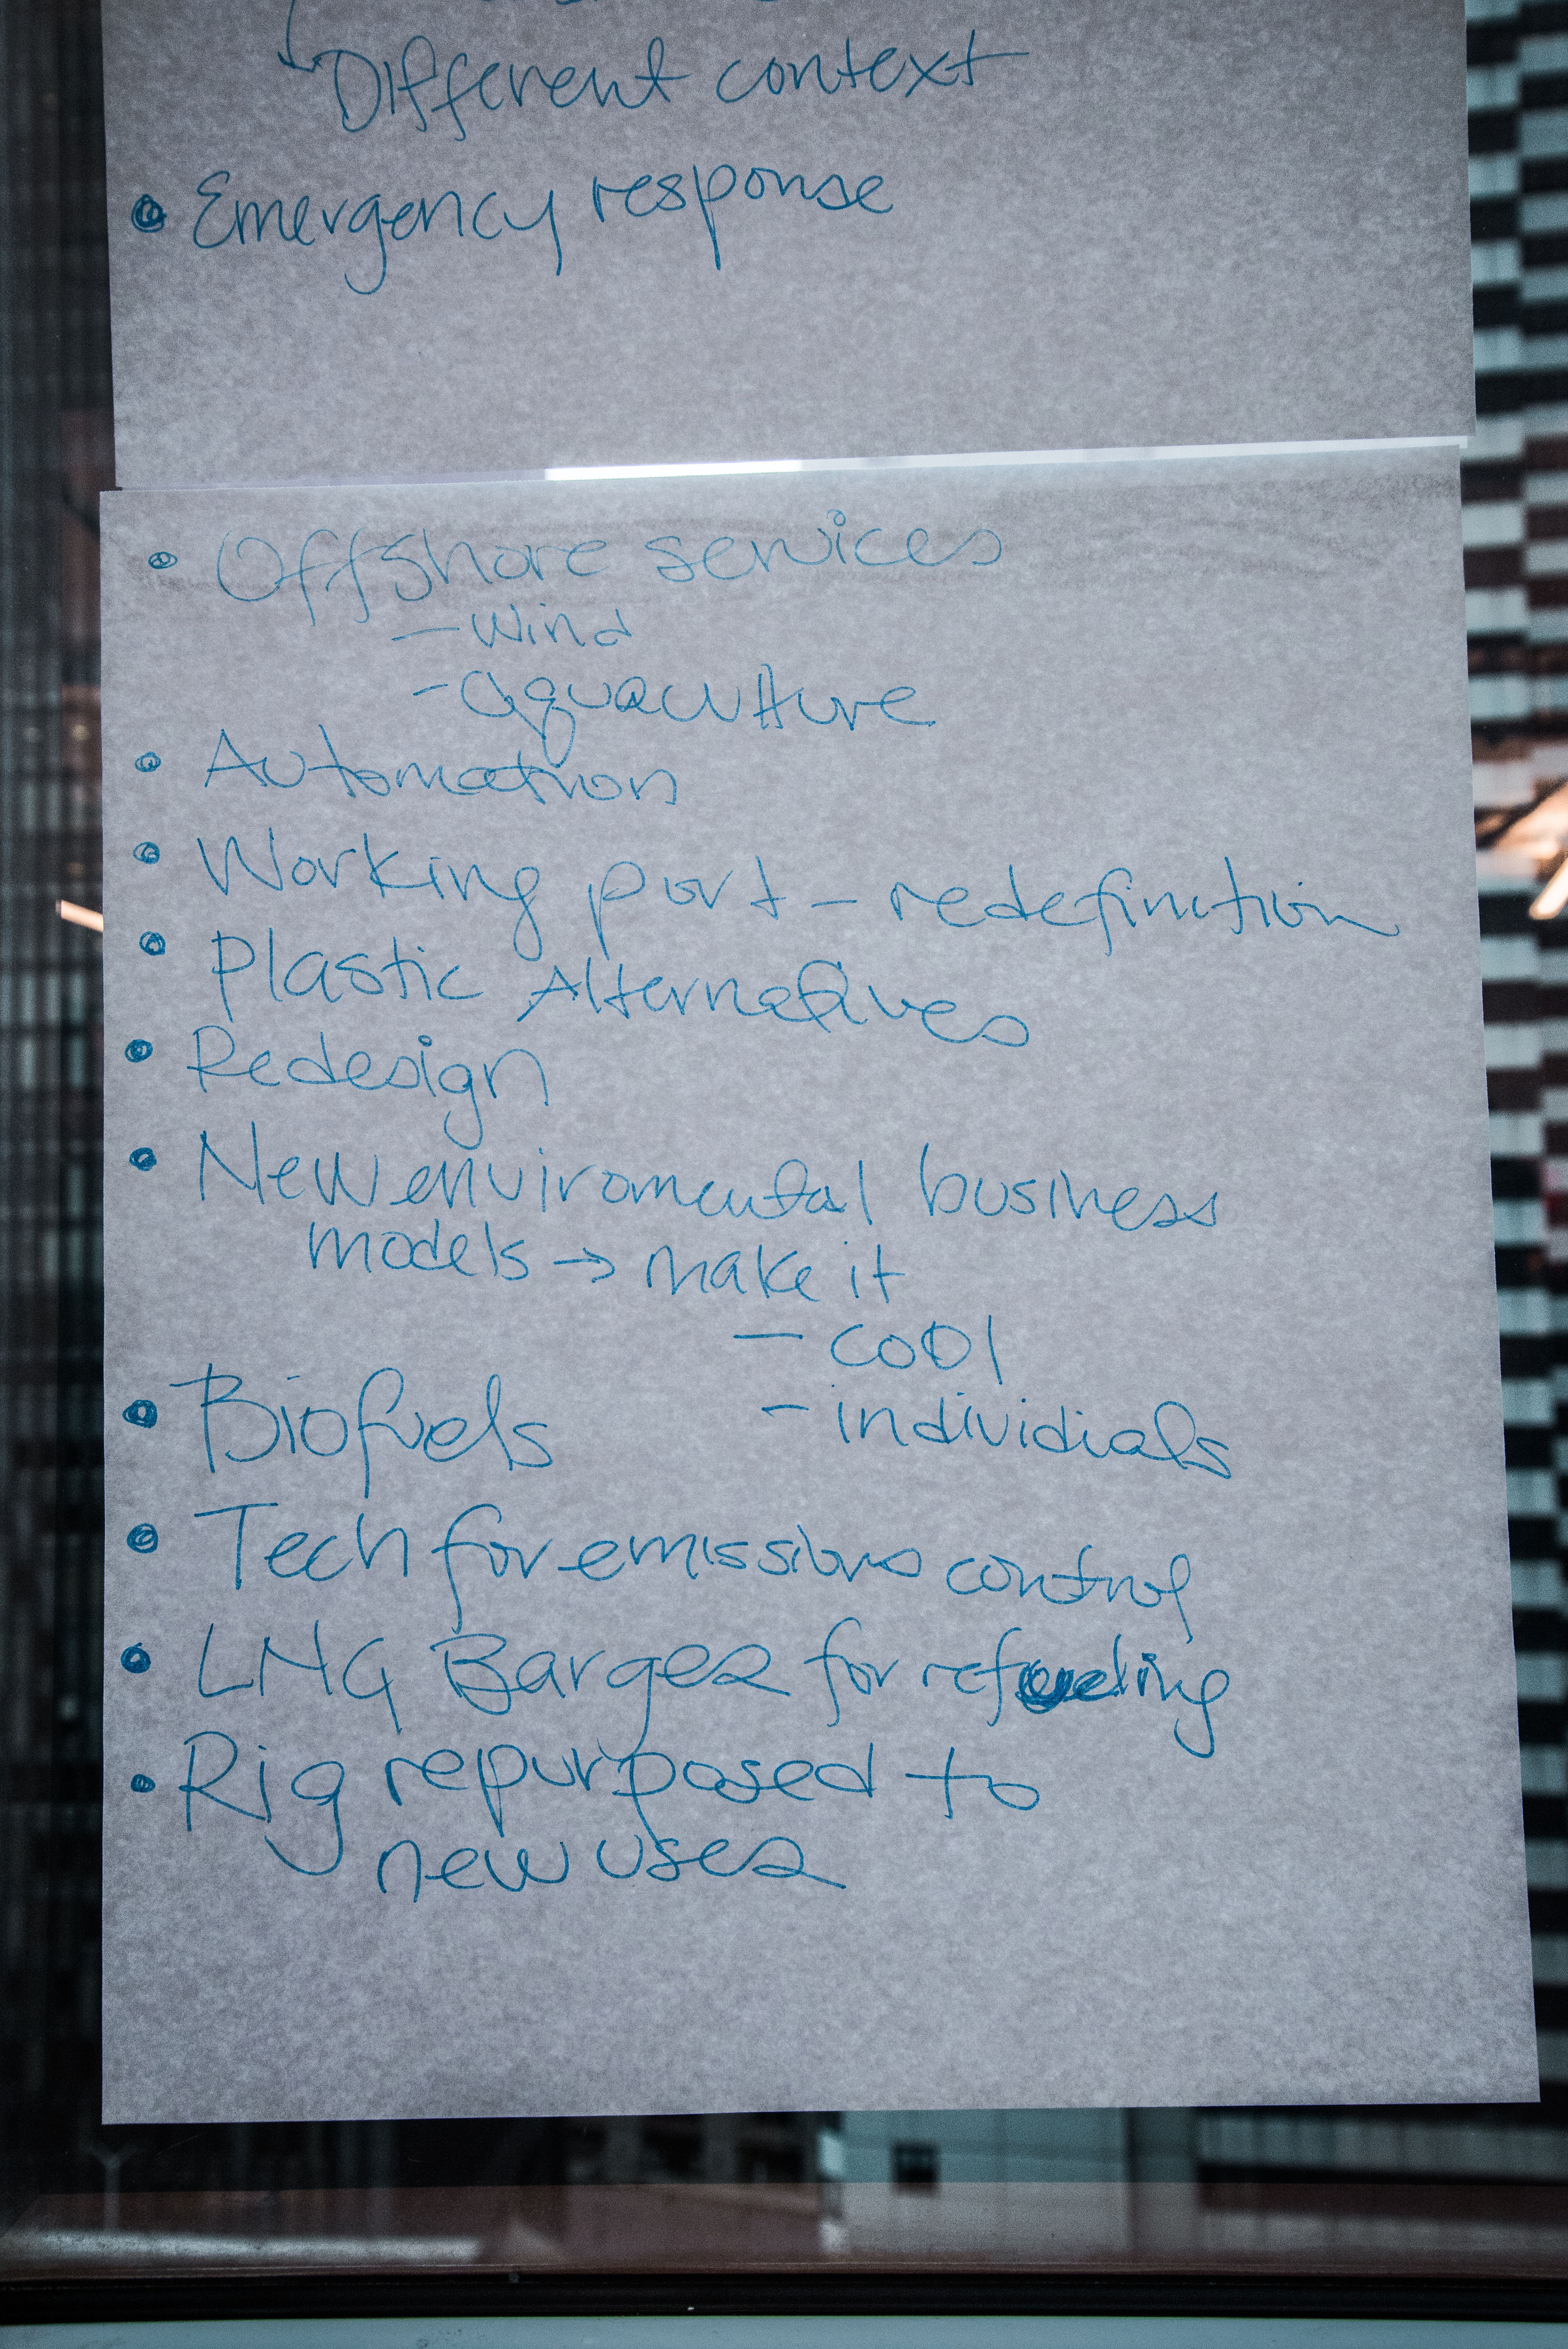 ↳ Different context
• Emergency response
• Offshore services
— Wind
- aquaculture
• Automation
• Working port - redefinition
• Plastic Alternatives
• Redesign
• New enviromental business
models → make it
— cool
- individials
• Biofuels
• Tech for emissions control
• LNG Barges for refueling
• Rig repurposed to
new uses